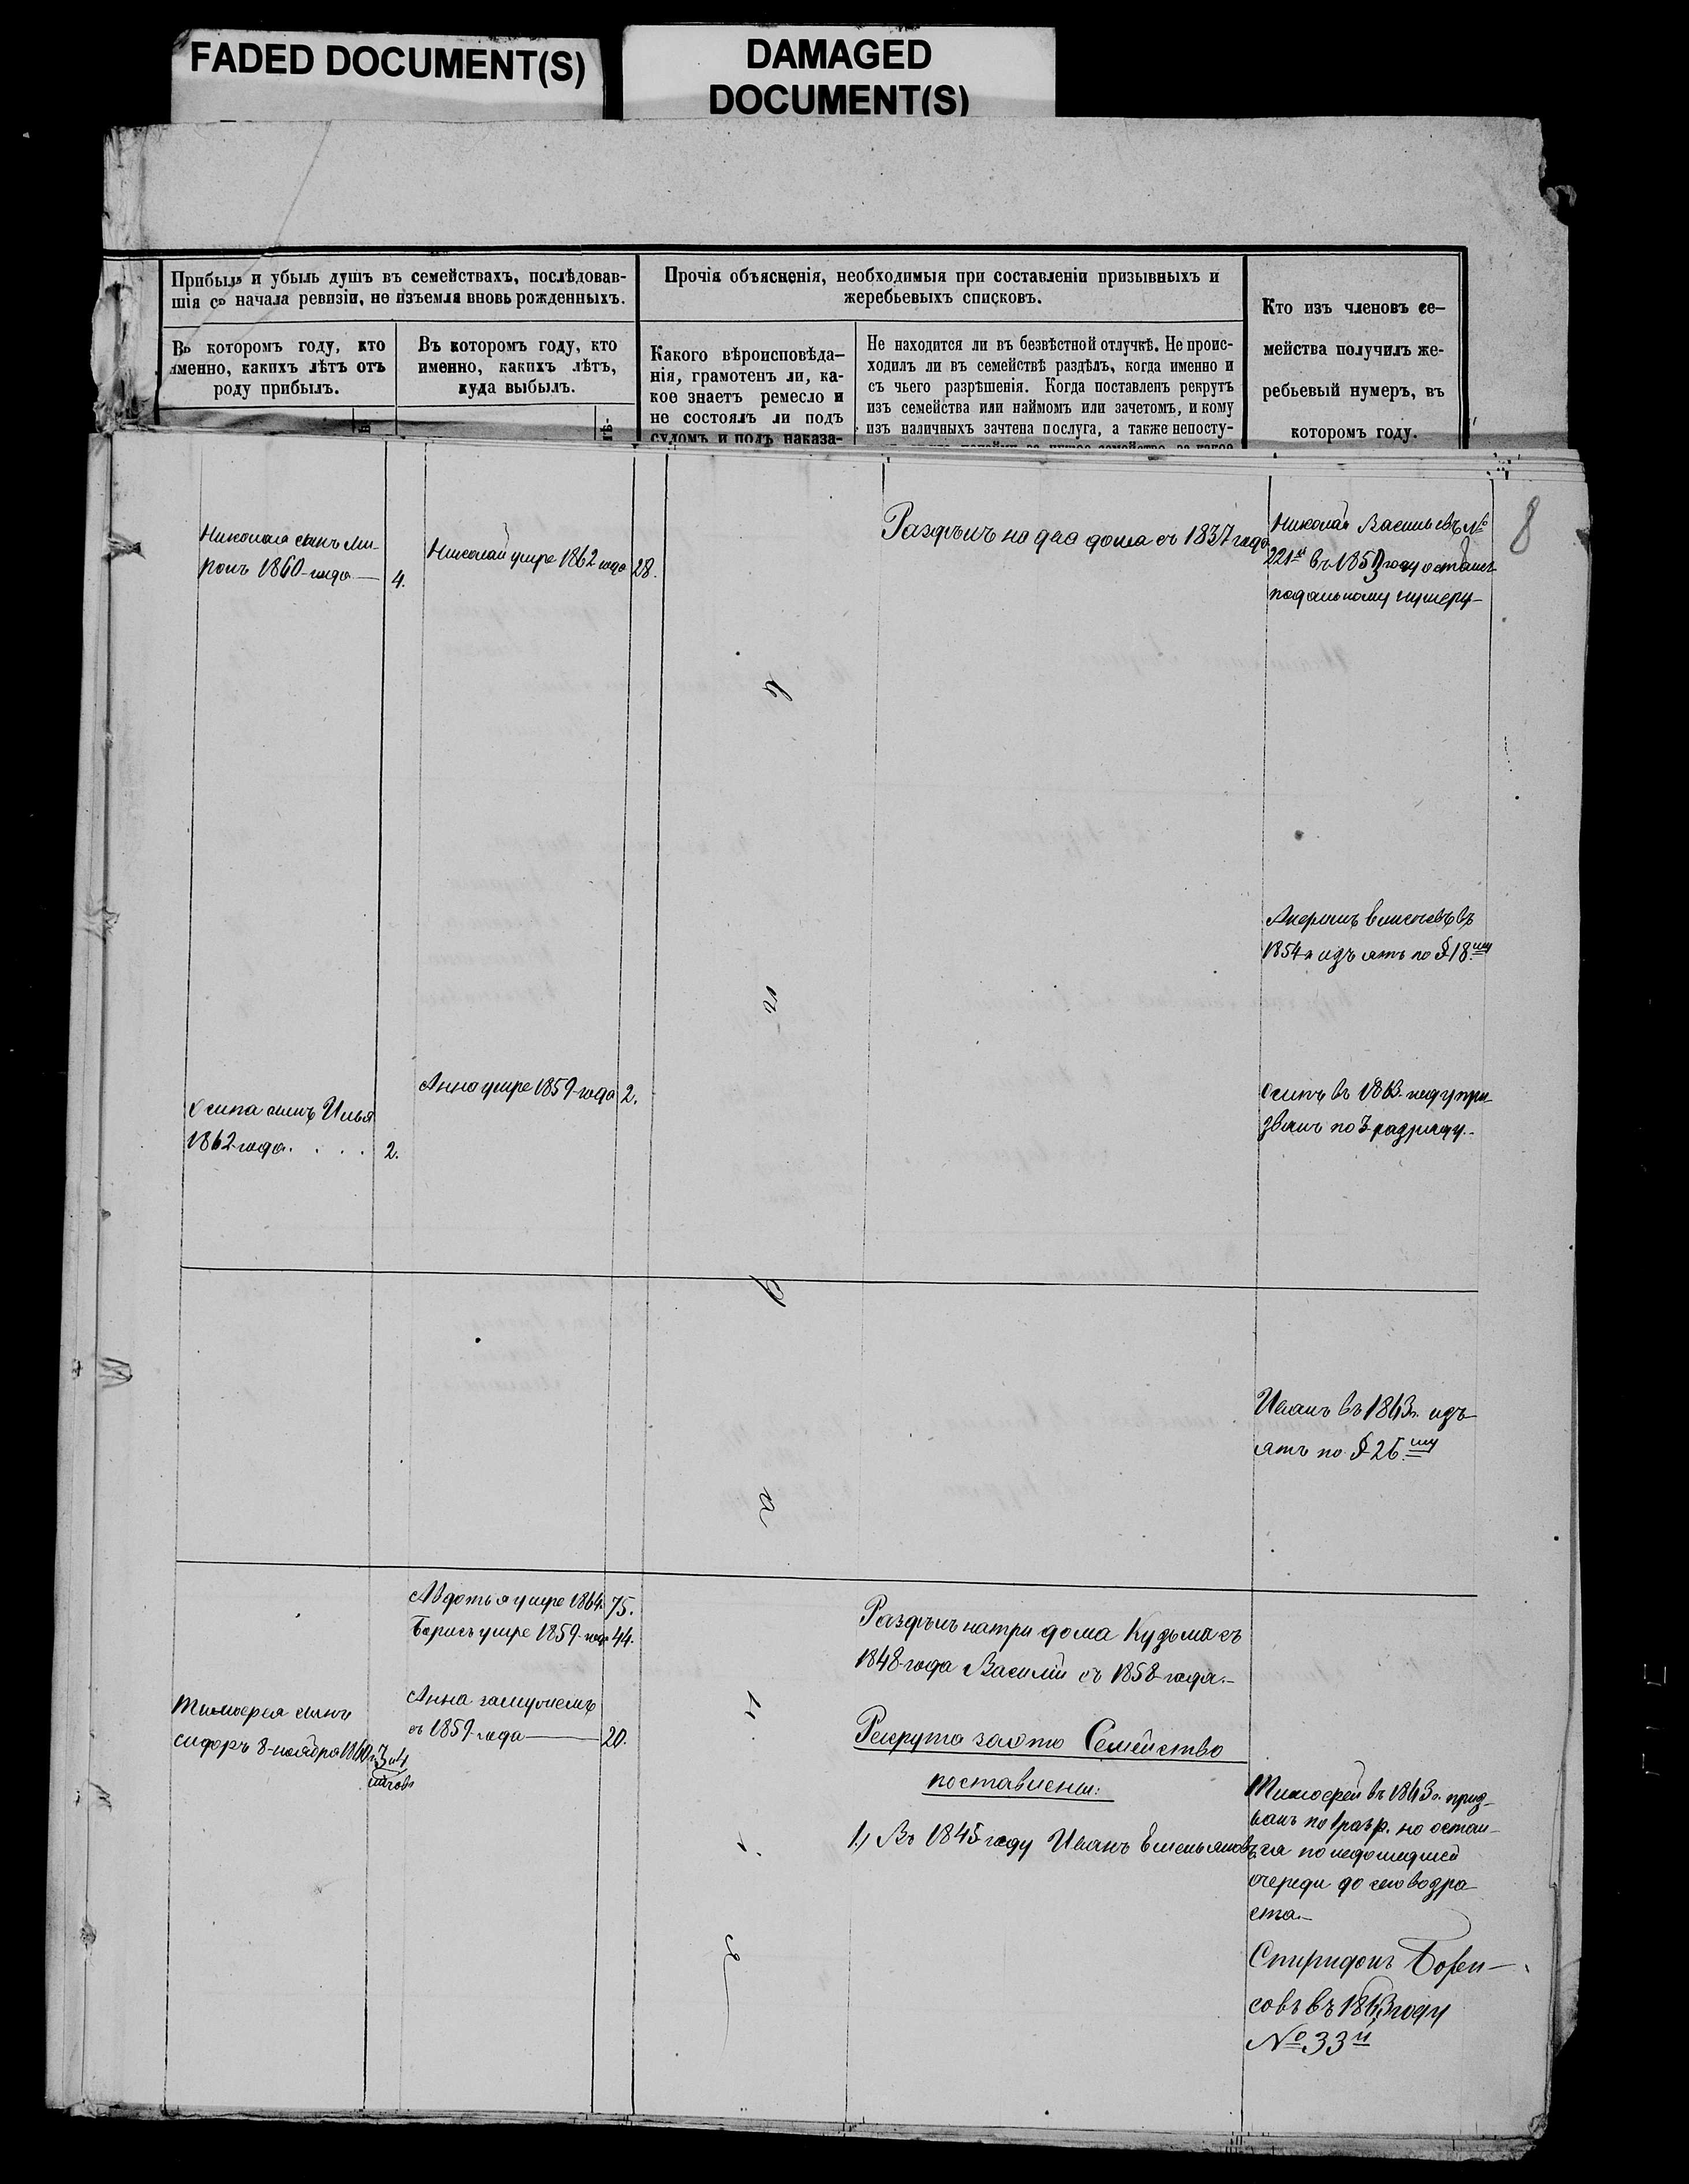 FADED DOCUMENT(S)
DAMAGED
DOCUMENT(S)
Прибыль и убыль душъ въ семействахъ, послѣдовав-
шія со начала ревизіи, не изъемля вновь рожденныхъ.
Въ которомъ году, кто
именно, какихъ лѣтъ отъ
роду прибылъ.
Въ которомъ году, кто
именно, какихъ лѣтъ,
куда выбылъ.
Прочія объясненія, необходимыя при составленіи призывныхъ и
жеребьевыхъ списковъ.
Какого вѣроисповѣда-
нія, грамотенъ ли, ка-
кое знаетъ ремесло и
не состоялъ ли подъ
судомъ и подъ наказа-
Не находится ли въ безвѣстной отлучкѣ. Не проис-
ходилъ ли въ семействѣ раздѣлъ, когда именно и
съ чьего разрѣшенія. Когда поставленъ рекрутъ
изъ семейства или наймомъ или зачетомъ, и кому
изъ наличныхъ зачтена послуга, а также непосту-
Кто изъ членовъ се-
мейства получилъ же-
ребьевый нумеръ, въ
которомъ году.
8
Николая сынъ Ми-
ронъ 1860-года — 4.
Николай умре 1862 года 28.
Раздѣлъ на два дома съ 1837 года
Николай Васильевъ №
221й въ 1853 году остался
по дальному нумеру-
въ
1854 г изъятъ по § 18му
Анна умре 1859-года 2.
Осипа сынъ Илья
1862 года. . . . . 2.
Осипъ въ 1863 году при-
званъ по 3 разряду.-
Иванъ въ 1863г. изъ-
ятъ по § 26му
Авдотья умре 1864 75.
Борисъ умре 1859-года 44.
Раздѣлъ на три дома Кузьма съ
1848-года Василій съ 1858-года.-
Тимофея сынъ
Сидоръ 8-ноября 1860
Анна замужемъ
съ 1859-года — 20.
Рекрута за это Семейство
поставлены:
1.) Въ 1845 году Иванъ Емельяновъ
Тимофей въ 1863г. приз-
ванъ по 1 разр. но остал-
ся по недошедшей
очереди до его возра
ста.-
Спиридонъ Бори-
совъ въ 1863 году
№ 33й